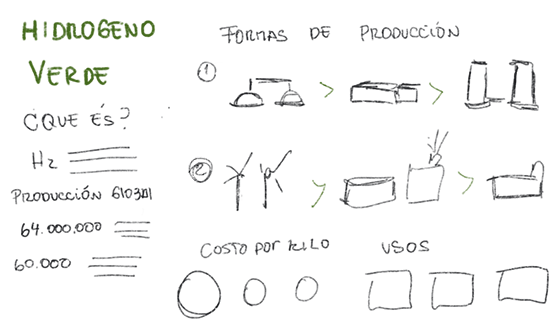 HIDROGENO
VERDE
¿QUE ÉS?
H2
PRODUCCIÓN GLOBAL
64.000.000
60.000
FORMAS DE PRODUCCIÓN
1
2
COSTO POR KILO
USOS